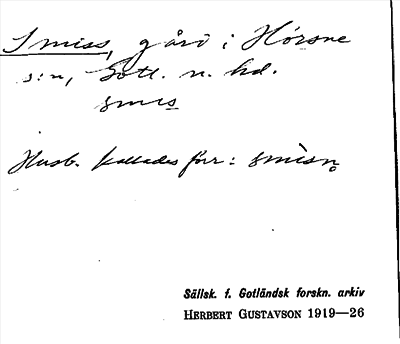 Smiss, gård i Hörsne
s:n, Gotl. n. hd.
smis
Husb. kallades förr: smisn̥
Sällsk. f. Gotländsk forskn. arkiv
HERBERT GUSTAVSON 1919—26